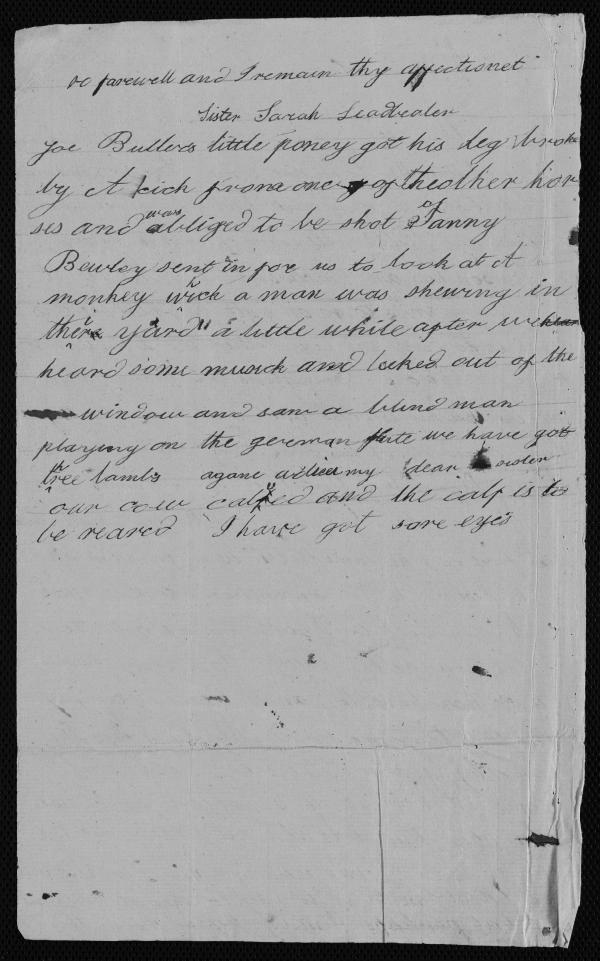 so farewell and I remain thy affectionet
Sister Sarah Leadbeater
Joe Butlers little poney got his leg broke
by A kick from one of the other hor
ses and was obliged to be shot Fanny
Bewley sent in for us to look at A
monkey which a man was shewing in
their yard a little while after we hear
heard some musick and looked out of the
window and saw a blind man
playing on the german flute we have got
three lambs agane my dear sister
our cow calved and the calf is to
be reared I have got sore eyes